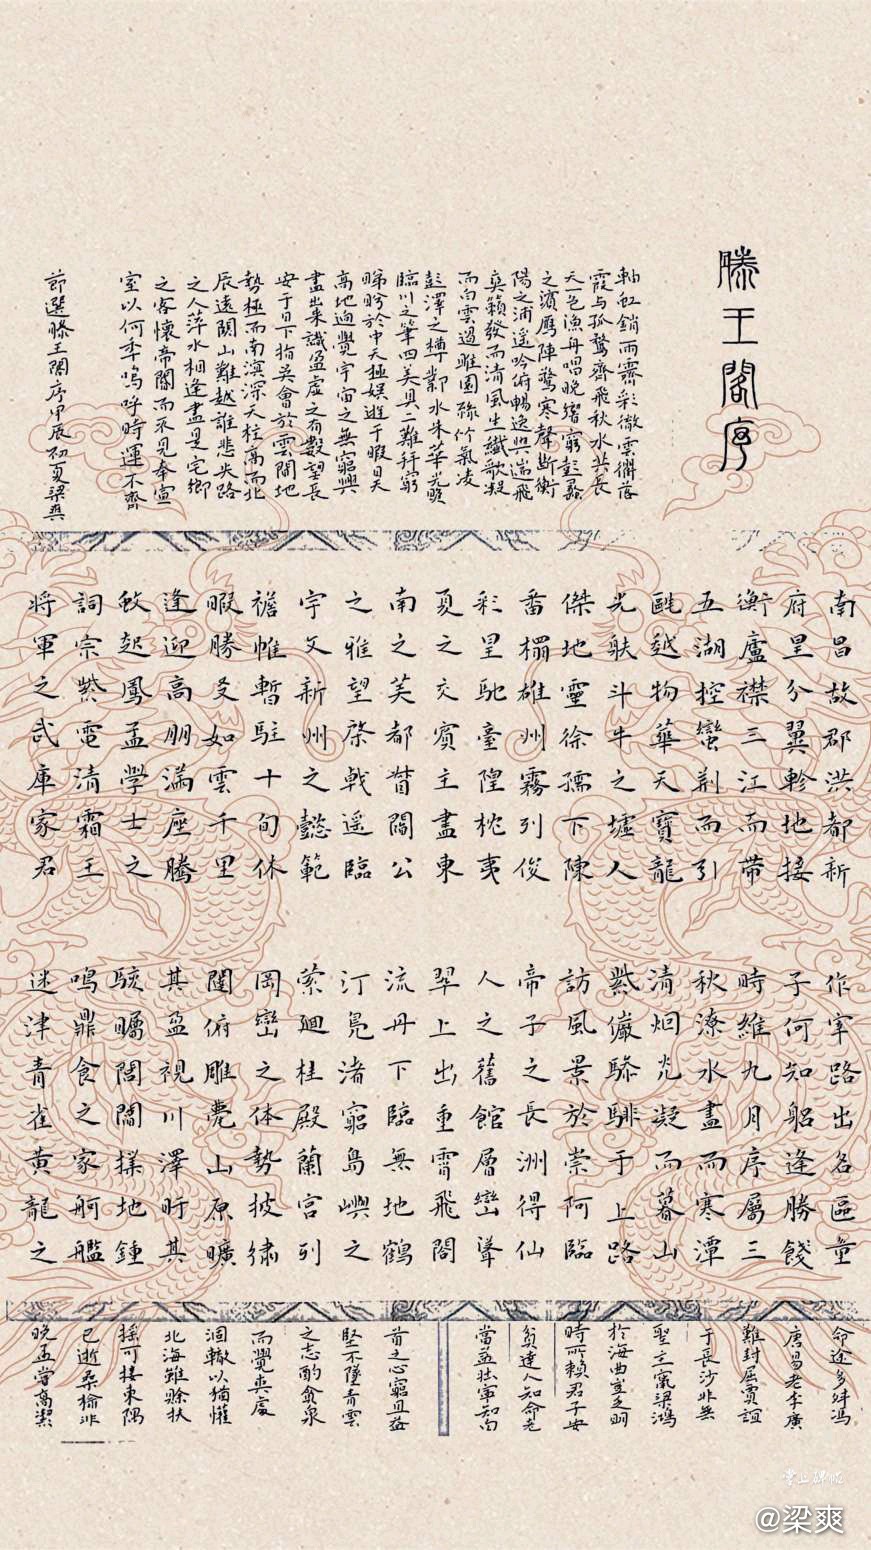 滕王閣序
南昌故郡洪都新
府星分翼軫地接
衡廬襟三江而帶
五湖控蠻荆而引
甌越物華天寶龍
光射斗牛之墟人
傑地靈徐孺下陳
蕃榻雄州霧列俊
彩星馳臺隍枕夷
夏之交賓主盡東
南之美都督閻公
之雅望棨戟遥臨
宇文新州之懿範
襜帷暫駐十旬休
暇勝友如雲千里
逢迎高朋滿座騰
蛟起鳳孟學士之
詞宗紫電清霜王
將軍之武庫家君
作宰路出名區童
子何知躬逢勝餞
時維九月序屬三
秋潦水盡而寒潭
清烟光凝而暮山
紫儼驂騑于上路
訪風景於崇阿臨
帝子之長洲得仙
人之舊館層巒聳
翠上出重霄飛閣
流丹下臨無地鶴
汀鳧渚窮島嶼之
縈廻桂殿蘭宮列
岡巒之体勢披绣
闥俯雕甍山原曠
其盈視川澤盱其
駭矚閭閻撲地鐘
鳴鼎食之家舸艦
迷津青雀黄龍之
軸虹銷雨霽彩徹雲衢落
霞与孤鶩齊飛秋水共長
天一色漁舟唱晚響窮彭蠡
之濱鴈陣驚寒聲斷衡
陽之浦遥吟俯暢逸興遄飛
爽籟發而清風生纖歌凝
而白雲遏睢園綠竹氣凌
彭澤之樽鄴水朱華光照
臨川之筆四美具二難并窮
睇眄於中天極娱遊于暇日天
高地迥覺宇宙之無窮興
盡悲来識盈虚之有數望長
安于日下指吴會於雲間地
勢極而南溟深天柱高而北
辰遠關山難越誰悲失路
之人萍水相逢盡是它鄉
之客懷帝閽而不見奉宣
室以何年嗚呼時運不齊
命途多舛馮
唐易老李廣
難封屈賈誼
于長沙非無
聖主竄梁鴻
於海曲豈乏明
時所賴君子安
貧達人知命老
當益壯寧知白
首之心窮且益
堅不墜青雲
之志酌貪泉
而覺爽處
涸轍以猶懽
北海雖賒扶
摇可接東隅
已逝桑榆非
晚孟嘗高潔
節選滕王閣序甲辰初夏梁爽
掌上碑帖
@梁爽